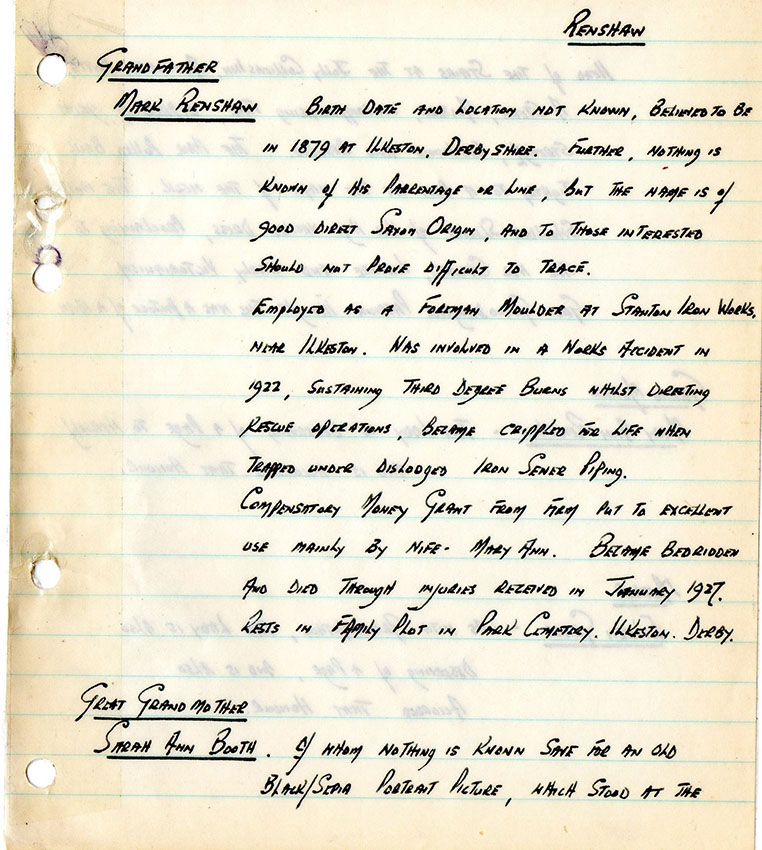 RENSHAW
GRANDFATHER
MARK RENSHAW BIRTH DATE AND LOCATION NOT KNOWN, BELIEVED TO BE
IN 1879 AT ILKESTON, DERBYSHIRE. FURTHER, NOTHING IS
KNOWN OF HIS PARRENTAGE OR LINE, BUT THE NAME IS OF
GOOD DIRECT SAXON ORIGIN, AND TO THOSE INTERESTED
SHOULD NOT PROVE DIFFICULT TO TRACE.
EMPLOYED AS A FOREMAN MOULDER AT STANTON IRON WORKS,
NEAR ILKESTON. WAS INVOLVED IN A WORKS ACCIDENT IN
1922, SUSTAINING THIRD DEGREE BURNS WHILST DIRECTING
RESCUE OPERATIONS, BECAME CRIPPLED FOR LIFE WHEN
TRAPPED UNDER DISLODGED IRON SEWER PIPING.
COMPENSATORY MONEY GRANT FROM FIRM PUT TO EXCELLENT
USE MAINLY BY WIFE - MARY ANN. BECAME BEDRIDDEN
AND DIED THROUGH INJURIES RECEIVED IN JANUARY 1927.
RESTS IN FAMILY PLOT IN PARK CEMETERY. ILKESTON. DERBY.
GREAT GRANDMOTHER
SARAH ANN BOOTH. OF WHOM NOTHING IS KNOWN SAVE FOR AN OLD
BLACK/SEPIA PORTRAIT PICTURE, WHICH STOOD AT THE